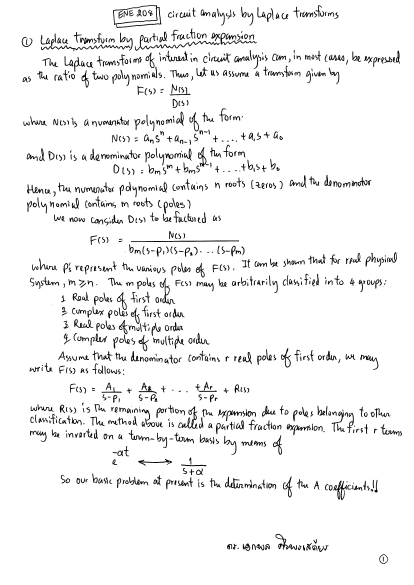 ENE 208 circuit analysis by Laplace transforms
① Laplace transform by partial fraction expansion
The Laplace transforms of interest in circuit analysis can, in most cases, be expressed
as the ratio of two polynomials. Thus, let us assume a transform given by
F(s) = N(s)/D(s)
where N(s) is a numerator polynomial of the form:
N(s) = aₙsⁿ + aₙ₋₁sⁿ⁻¹ + .... + a₁s + a₀
and D(s) is a denominator polynomial of the form
D(s) = bₘsᵐ + bₘsᵐ⁻¹ + ... + b₁s + b₀
Hence, the numerator polynomial contains n roots (zeros) and the denominator
polynomial contains m roots (poles)
We now consider D(s) to be factored as
F(s) = N(s)/bₘ(s-p₁)(s-p₂)...(s-pₘ)
where p's represent the various poles of F(s). It can be shown that for real physical
System, m ≥ n. The m poles of F(s) may be arbitrarily classified into 4 groups:
1 Real poles of first order
2 Complex poles of first order
3 Real poles of multiple order
4 Complex poles of multiple order
Assume that the denominator contains r real poles of first order, we may
write F(s) as follows:
F(s) = A₁/s-p₁ + A₂/s-p₂ + ... + Aᵣ/s-pᵣ + R(s)
where R(s) is the remaining portion of the expansion due to poles belonging to other
classification. The method above is called a partial fraction expansion. The first r terms
may be inverted on a term-by-term basis by means of
e^-αt ⟷ 1/s+α
So our basic problem at present is the determination of the A coefficients!!
ดร.
①